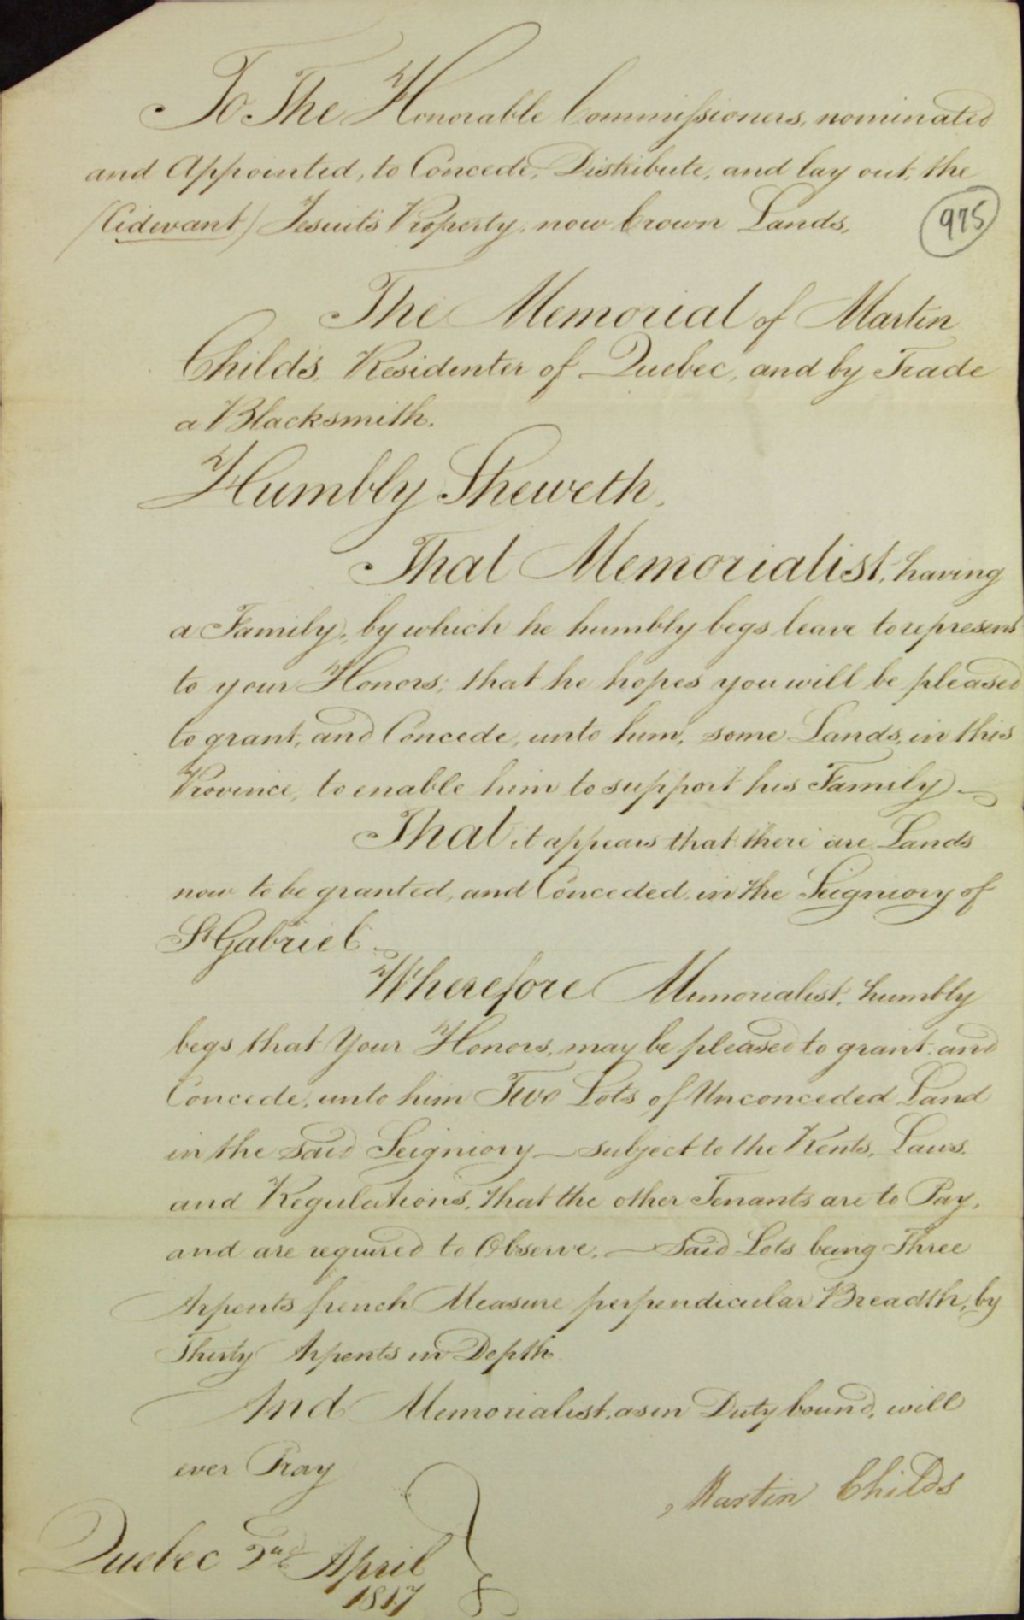 To The Honorable Commissioners, nominated
and Appointed, to Concede, Distribute, and lay out, the
(Cidevant) Jesuits Property, now Crown Lands,
975
The Memorial of Martin
Childs, Residenter of Quebec, and by Trade
a Blacksmith.
Humbly Sheweth,
That Memorialist, having
a Family, by which he humbly begs leave to represent
to your Honors; that he hopes you will be pleased
to grant, and Concede, unto him, some Lands, in this
Province, to enable him to support his Family —
That it appears that there are Lands
now to be granted, and Conceded, in the Seigniory of
St Gabriel
Wherefore Memorialist, humbly
begs that Your Honors, may be pleased to grant, and
Concede, unto him Two Lots of Unconceded Land
in the said Seigniory — subject to the Rents, Laws,
and Regulations, that the other Tenants are to Pay,
and are required to Observe, — Said Lots being Three
Arpents french Measure perpendicular Breadth, by
Thirty Arpents in Depth
And Memorialist, as in Duty bound, will
ever Pray
Martin Childs
Quebec 2nd April
1817